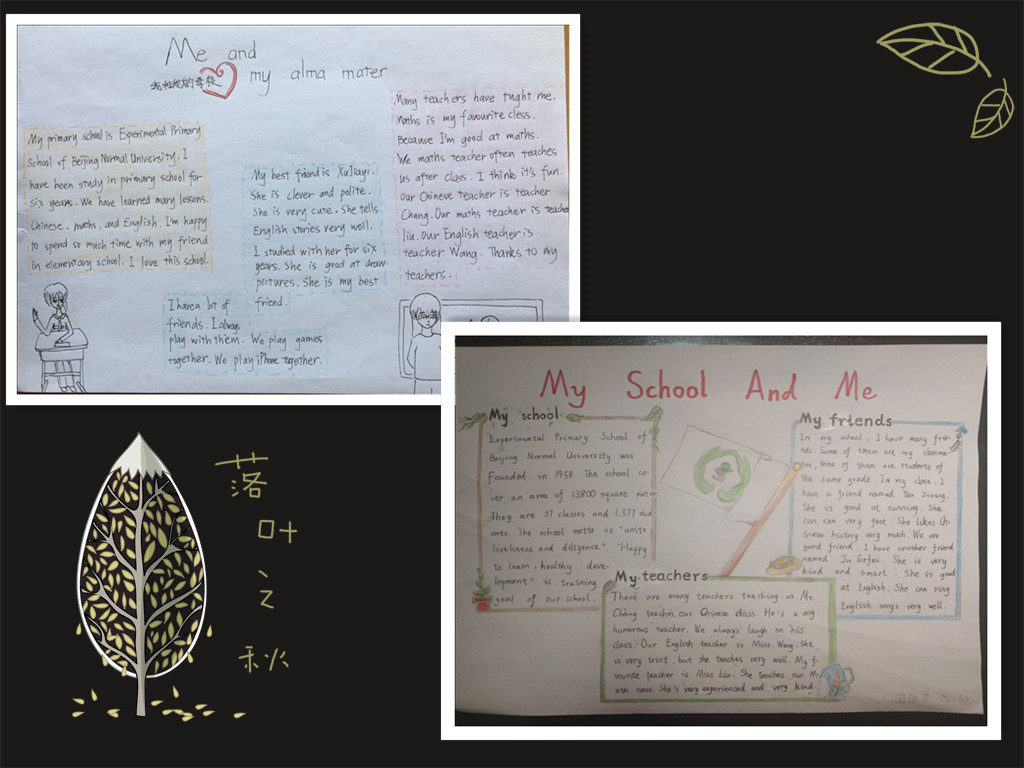 Me and
my alma mater
我和我的母校
My primary school is Experimental Primary
School of Beijing Normal University. I
have been study in primary school for
six years. We have learned many lessons.
Chinese, maths, and English. I'm happy
to spend so much time with my friend
in elementary school. I love this school.
My best friend is XuJiayi.
She is clever and polite.
She is very cute. She tells
English stories very well.
I studied with her for six
years. She is good at draw
pictures. She is my best
friend.
I have a lot of
friends. I always
play with them. We play games
together. We play iPhone together.
Many teachers have tught me.
Maths is my favourite class.
Because I'm good at maths.
We maths teacher often teaches
us after class. I think it's fun.
Our Chinese teacher is teacher
Chang. Our maths teacher is teacher
liu. Our English teacher is
teacher Wang. Thanks to my
teachers.
My School And Me
My school
Experimental Primary School of
Beijing Normal University was
founded in 1958. The school co-
ver an area of 13800 square
They are 37 classes and 1,577
The school motto is "unite
liveliness and diligence". "Happy
to learn, healthy deve-
lopment" is training
goal of our school.
My friends
In my school, I have many frie-
nds. Some of them are my classma-
tes, some of them are students of
the same grade. In my class, I
have a friend named Yan
She is good at running. She
can ran very fast. She likes Ch-
inese history very much. We are
good friend. I have another friend
named Ju Gefei. She is very
kind and smart. She is good
at English. She can sing
English songs very well.
My teachers
There are many teachers teaching us. Mr.
Chang teaches our Chinese class. He's a very
humorous teacher. We always laugh on his
class. Our English teacher is Miss. Wang. She
is very strict, but she teaches very well. My f-
vourite teacher is Miss Liu. She teaches our M-
ath class. She's very experienced and very kind.
落
叶
之
秋